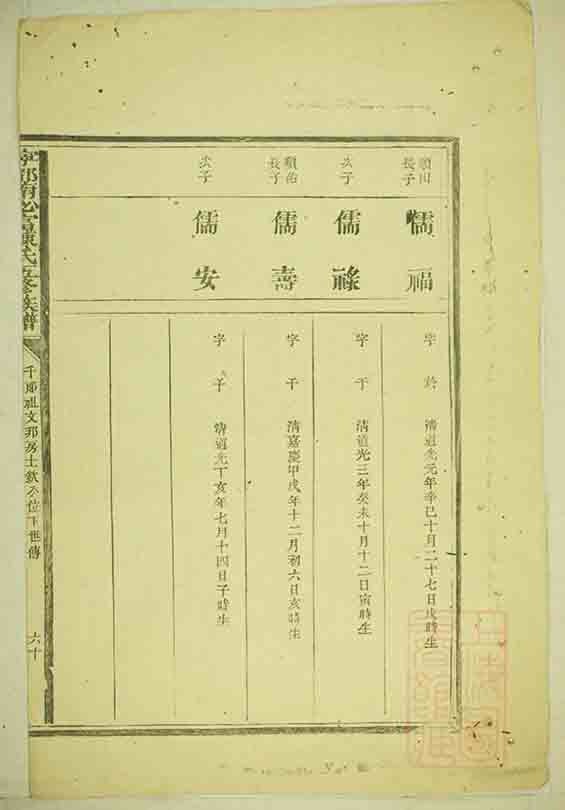 順田
長子
儒福
字 於 清道光元年辛巳十月二十七日戌時生
次子
儒祿
字 于 清道光三年癸未十月十二日寅時生
順佑
長子
儒壽
字 于 清嘉慶甲戌年十二月初六日亥時生
次子
儒安
字 于 清道光丁亥年七月十四日子時生
陳氏五修族譜
千郎祖文邦房士欽公位下世傳
六十